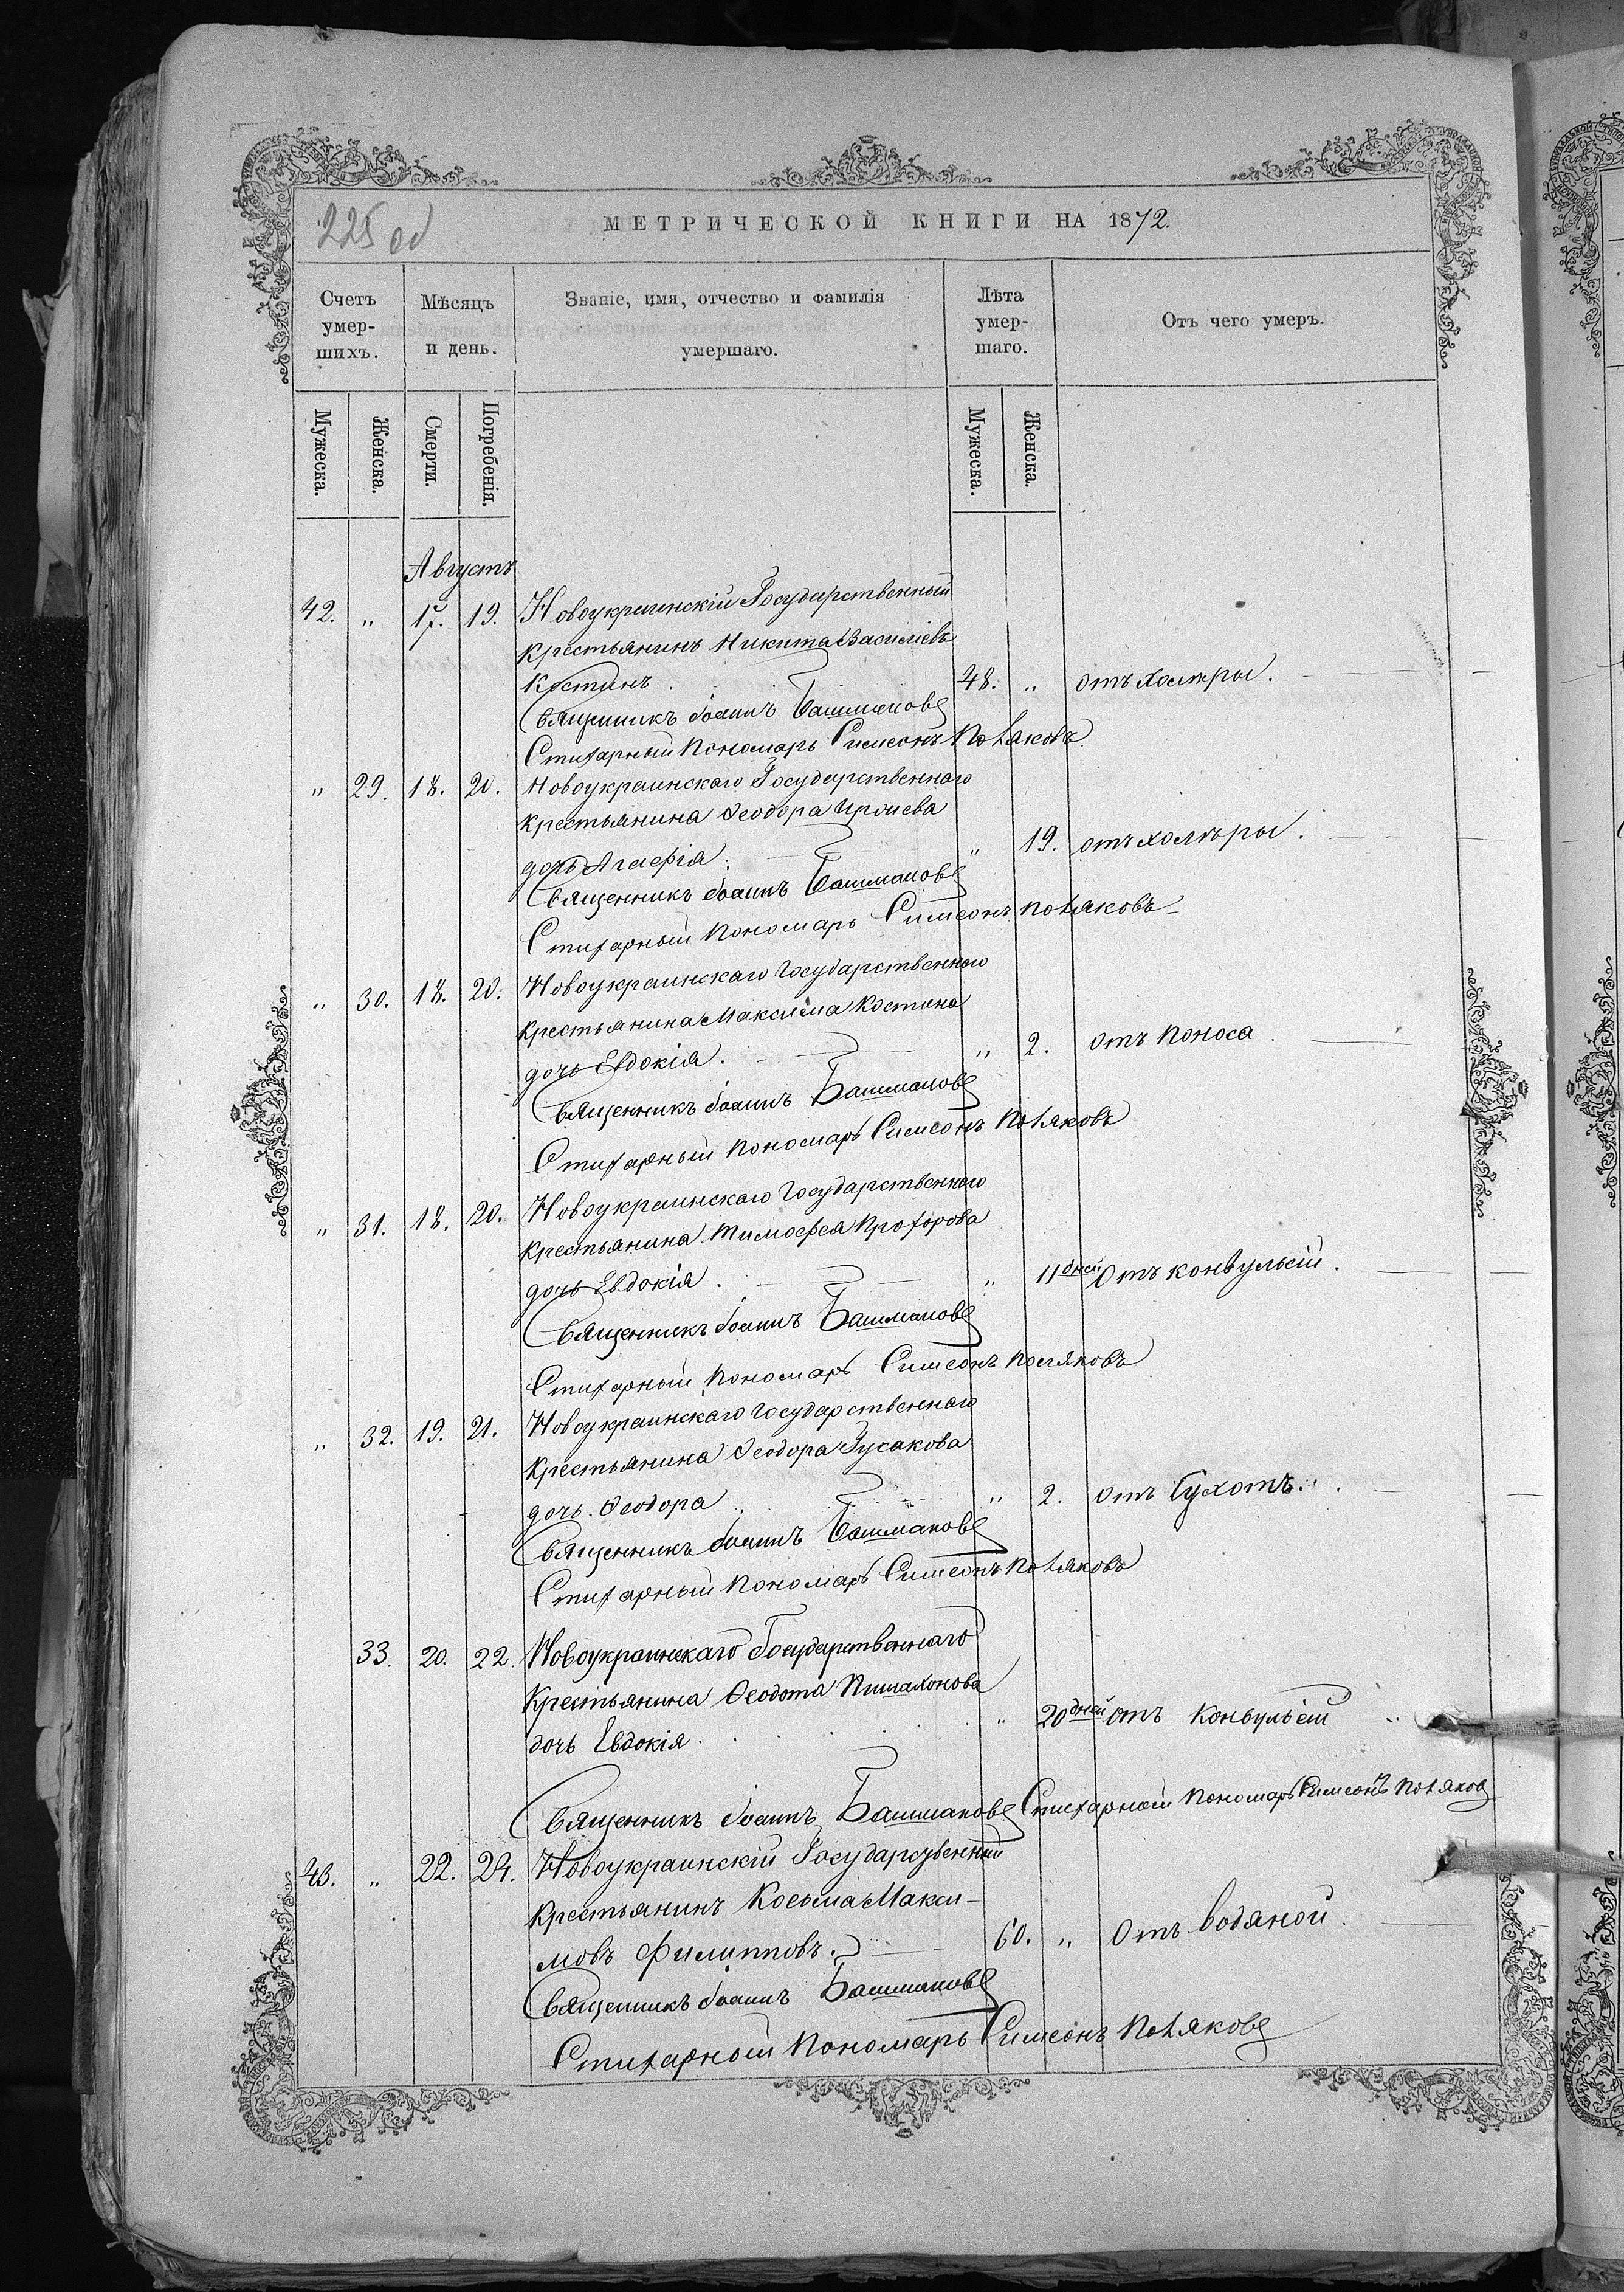 225 об
МЕТРИЧЕСКОЙ КНИГИ НА 1872.
Счетъ умер-шихъ.
Мѣсяцъ и день.
Званіе, имя, отчество и фамилія умершаго.
Лѣта умер-шаго.
Отъ чего умеръ.
Мужеска.
Женска.
Смерти.
Погребенія.
Мужеска.
Женска.
Августъ
42. " 17. 19. Новоукраинскій Государственный
крестьянинъ Никита Василіевъ
Костинъ. 48. " отъ холеры.
Священникъ Іоаннъ Башмаковъ
Стихарный Пономарь Симеонъ Поляковъ.
" 29. 18. 20. Новоукраинскаго Государственнаго
крестьянина Ѳеодора
дочь Агафія. " 19. отъ холеры.
Священникъ Іоаннъ Башмаковъ
Стихарный Пономарь Симеонъ Поляковъ
" 30. 18. 20. Новоукраинскаго Государственнаго
крестьянина Максима Костина
дочь Евдокія. " 2. отъ поноса
Священникъ Іоаннъ Башмаковъ
Стихарный Пономарь Симеонъ Поляковъ
" 31. 18. 20. Новоукраинскаго Государственнаго
крестьянина Тимофея Прохорова
дочь Евдокія. " 11 дней Отъ конвульсій.
Священникъ Іоаннъ Башмаковъ
Стихарный Пономарь Симеонъ Поляковъ
" 32. 19. 21. Новоукраинскаго Государственнаго
крестьянина Ѳеодора Гусакова
дочь Ѳеодора " 2. отъ Сухотъ.
Священникъ Іоаннъ Башмаковъ
Стихарный Пономарь Симеонъ Поляковъ
33. 20. 22. Новоукраинскаго Государственнаго
Крестьянина Ѳеодота
дочь Евдокія. " 20 дней отъ Конвульсій
Священникъ Іоаннъ Башмаковъ Стихарный Пономарь Симеонъ Поляковъ
43. " 22. 24. Новоукраинскій Государственный
Крестьянинъ Косьма Макси-
мовъ Филипповъ. 60. " Отъ водяной.
Священникъ Іоаннъ Башмаковъ
Стихарный Пономарь Симеонъ Поляковъ